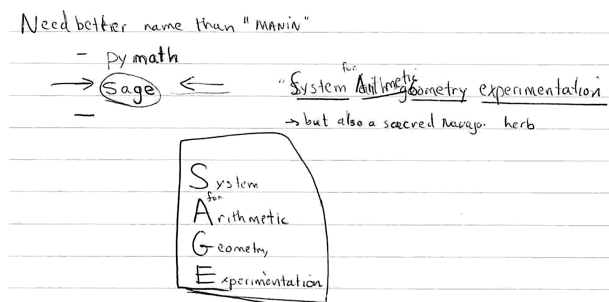 Need better name than "MANIN"
- pymath
→ sage ←
-
"System for Arithmetic geometry experimentation
→ but also a sacred Navajo. herb
System
for
Arithmetic
Geometry
Experimentation